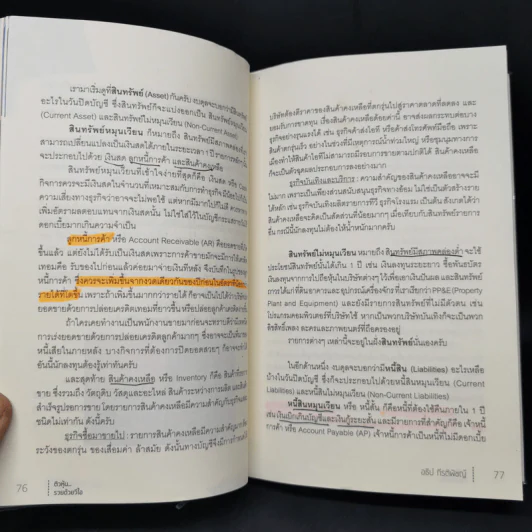 เรามาเริ่มดูที่สินทรัพย์ (Asset) กันครับ งบดุลจะบอกว่ามีสินทรัพย์
อะไรในวันปิดบัญชี ซึ่งสินทรัพย์ก็จะแบ่งออกเป็น สินทรัพย์หมุนเวียน
(Current Asset) และสินทรัพย์ไม่หมุนเวียน (Non-Current Asset)
สินทรัพย์หมุนเวียน ก็หมายถึง สินทรัพย์มีสภาพคล่อง
สามารถเปลี่ยนแปลงเป็นเงินสดได้ภายในระยะเวลา 1 ปี รายการหลักๆ
จะประกอบไปด้วย เงินสด ลูกหนี้การค้า และสินค้าคงเหลือ
สินทรัพย์หมุนเวียนที่เข้าใจง่ายที่สุดก็คือ เงินสด หรือ
กิจการควรจะมีเงินสดในจำนวนที่เหมาะสมกับการทำธุรกิจ
ความเสี่ยงทางธุรกิจว่าอาจจะไม่พอใช้ แต่หากมีมากไปก็ไม่ดี
เพิ่มอัตราผลตอบแทนจากเงินสดนั้น ไม่ใช่ใส่ไว้ในบัญชีกระแสรายวัน
ดอกเบี้ยมากเกินความจำเป็น
ลูกหนี้การค้า หรือ Account Receivable (AR) คือยอดขายที่
ขึ้นแล้ว แต่ยังไม่ได้รับเป็นเงินสดเพราะการค้าขายมักจะมีการให้เครดิต
เทอมคือ รับของไปก่อนแล้วค่อยมาจ่ายเงินทีหลัง จึงบันทึกในรูปของลูกหนี้
การค้า ซึ่งควรจะเพิ่มขึ้นจากงวดเดียวกันของปีก่อนในอัตราที่น้อยกว่า
รายได้ที่โตขึ้น เพราะถ้าเพิ่มขึ้นมากกว่ารายได้ ก็อาจจะเป็นไปได้ว่าบริษัท
ยอดขายด้วยการปล่อยเครดิตเทอมที่ยาวขึ้น หรือปล่อยลูกค้าเครดิต
ถ้าใครเคยทำงานเป็นพนักงานขายมาก่อนจะทราบดีว่า
การเร่งยอดขายด้วยการปล่อยเครดิตลูกค้ามากๆ ซึ่งอาจจะเป็น
หนี้เสียในภายหลัง บางกิจการที่ต้องการปิดยอดสวยๆ ก็อาจทำ
อันนี้นักลงทุนต้องรู้เท่าทันครับ
และสุดท้าย สินค้าคงเหลือ หรือ Inventory ก็คือ สินค้าที่รอการ
ขาย ซึ่งรวมถึง วัตถุดิบ วัสดุและอะไหล่ สินค้าระหว่างการผลิต และสินค้า
สำเร็จรูปรอการขาย โดยรายการสินค้าคงเหลือมีความสำคัญกับธุรกิจแต่ละ
ชนิดไม่เท่ากัน ดังนี้ครับ
ธุรกิจซื้อมาขายไป : รายการสินค้าคงเหลือมีความสำคัญมาก
ระวังของตกรุ่น ของเสื่อมค่า ล้าสมัย ดังนั้นทางบัญชีจึงมีการ
76
ติวหุ้น..
รวยด้วยวีไอ
บริษัทต้องตีราคาของสินค้าคงเหลือที่ตกรุ่นไปสู่ราคาตลาดที่ลดลง และ
ยอมรับการขาดทุน เรื่องสินค้าคงเหลือด้อยค่านี้ อาจส่งผลกระทบต่อบาง
ธุรกิจอย่างรุนแรงได้ เช่น ธุรกิจค้าส่งไอที หรือค้าส่งโทรศัพท์มือถือ เพราะ
สินค้าตกรุ่นเร็ว อย่างในช่วงที่มีเหตุการณ์น้ำท่วมใหญ่ หรือชุมนุมทางการ
เมืองทำให้สินค้าไอทีไม่สามารถมีรอบการขายตามปกติได้ สินค้าคงเหลือ
ก็จะเป็นตัวฉุดผลประกอบการลงอย่างมาก
ธุรกิจบันเทิงและบริการ : ความสำคัญของสินค้าคงเหลืออาจจะมี
ไม่มาก เพราะเป็นเพียงส่วนสนับสนุนธุรกิจทางอ้อม ไม่ใช่เป็นตัวสร้างราย
ได้หลัก เช่น ธุรกิจบันเทิงผลิตรายการทีวี ธุรกิจโรงแรม เป็นต้น สังเกตได้ว่า
สินค้าคงเหลือจะคิดเป็นสัดส่วนที่น้อยมากๆ เมื่อเทียบกับสินทรัพย์รายการ
อื่น กรณีนี้นักลงทุนก็ไม่ต้องให้น้ำหนักมากครับ
สินทรัพย์ไม่หมุนเวียน หมายถึง สินทรัพย์มีสภาพคล่องต่ำ จะใช้
ประโยชน์สินทรัพย์นั้นได้เกิน 1 ปี เช่น เงินลงทุนระยะยาว ซื้อพันธบัตร หรือ
ลงทุนจากการไปถือหุ้นในบริษัทต่างๆ ไว้เพื่อเอาเงินปันผล และสินทรัพย์จาก
การได้แก่ที่ดินอาคารและอุปกรณ์เครื่องจักร ที่เราเรียกว่า PP&E(Property
Plant and Equipment) และยังมีรายการสินทรัพย์ที่ไม่มีตัวตน เช่น
โปรแกรมคอมพิวเตอร์ที่บริษัทใช้ หากเป็นพวกบริษัทบันเทิงก็จะเป็นพวก
ลิขสิทธิ์เพลง ละครและภาพยนตร์ที่ถือครองอยู่
รายการต่างๆ เหล่านี้จะอยู่ในฝั่งสินทรัพย์นั่นเองครับ
ในอีกด้านหนึ่ง งบดุลจะบอกว่ามีหนี้สิน (Liabilities) อะไรเหลือ
บ้างในวันปิดบัญชี ซึ่งก็จะประกอบไปด้วยหนี้สินหมุนเวียน (Current
Liabilities) และหนี้สินไม่หมุนเวียน (Non-Current Liabilities)
หนี้สินหมุนเวียน หรือ หนี้สั้น ก็คือหนี้ที่ต้องใช้คืนภายใน 1 ปี
เช่น เงินเบิกเกินบัญชีและเงินกู้ระยะสั้น และมีรายการที่สำคัญก็คือ เจ้าหนี้
การค้า หรือ Account Payable (AP) เจ้าหนี้การค้าเป็นหนี้ที่ไม่มีดอกเบี้ย
อธิป กีรติพิชญ์
77